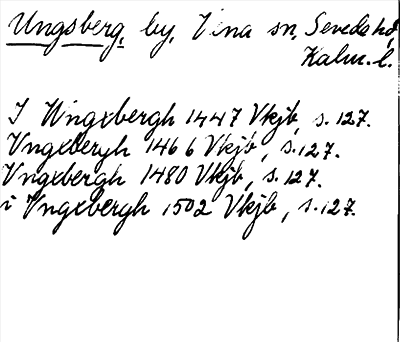 Ungsberg, by, Vena sn, Sevede hd,
Kalm. l.
I Ungxbergh 1447 Vkjb, s. 127.
Vngxbergh 1466 Vkjb, s. 127.
Vngxbergh 1480 Vkjb, s. 127.
i Vngxbergh 1502 Vkjb, s. 127.